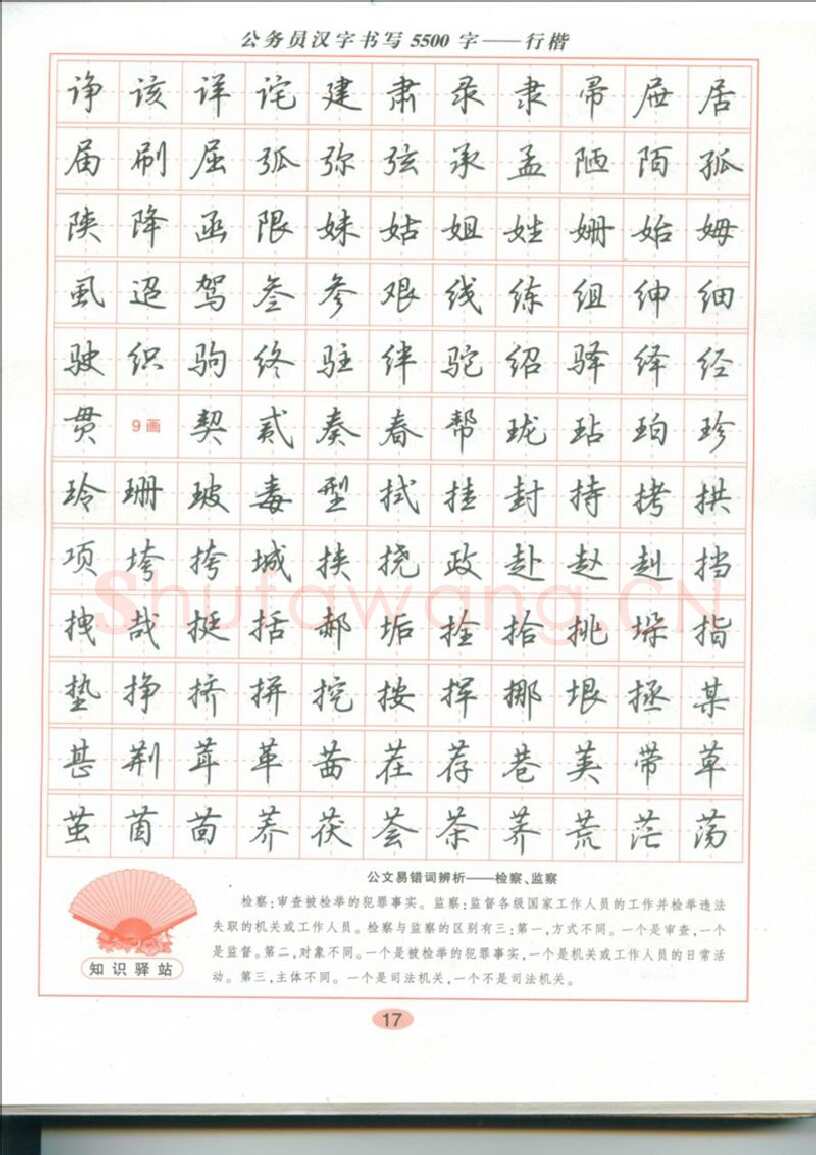 公务员汉字书写5500字——行楷
诤 该 详 诧 建 肃 录 隶 帚 屉 居
届 刷 屈 弧 弥 弦 承 孟 陋 陌 孤
陕 降 函 限 妹 姑 姐 姓 姗 始 姆
虱 迢 驾 叁 参 艰 线 练 组 绅 细
驶 织 驹 终 驻 绊 驼 绍 驿 绎 经
贯 9画 契 贰 奏 春 帮 珑 玷 珀 珍
玲 珊 玻 毒 型 拭 挂 封 持 拷 拱
项 垮 挎 城 挟 挠 政 赴 赵 赳 挡
拽 哉 挺 括 郝 垢 拴 拾 挑 垛 指
垫 挣 挤 拼 挖 按 挥 挪 垠 拯 某
甚 荆 茸 革 茜 茬 荐 巷 荚 带 草
茧 茵 茴 荞 茯 荟 茶 荒 茫 荡
公文易错词辨析——检察、监察
检察:审查被检举的犯罪事实。监察:监督各级国家工作人员的工作并检举违法
失职的机关或工作人员。检察与监察的区别有三:第一,方式不同。一个是审查,一个
是监督。第二,对象不同。一个是被检举的犯罪事实,一个是机关或工作人员的日常活
动。第三,主体不同。一个是司法机关,一个不是司法机关。
知识驿站
17
Shufawang.CN